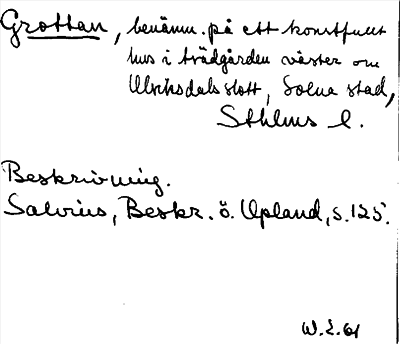 Grottan, benämn. på ett konstfullt
hus i trädgården väster om
Ulriksdals slott, Solna stad,
Sthlms l.
Beskrivning.
Salvius, Beskr. ö. Upland, s. 125.
W.E. 61